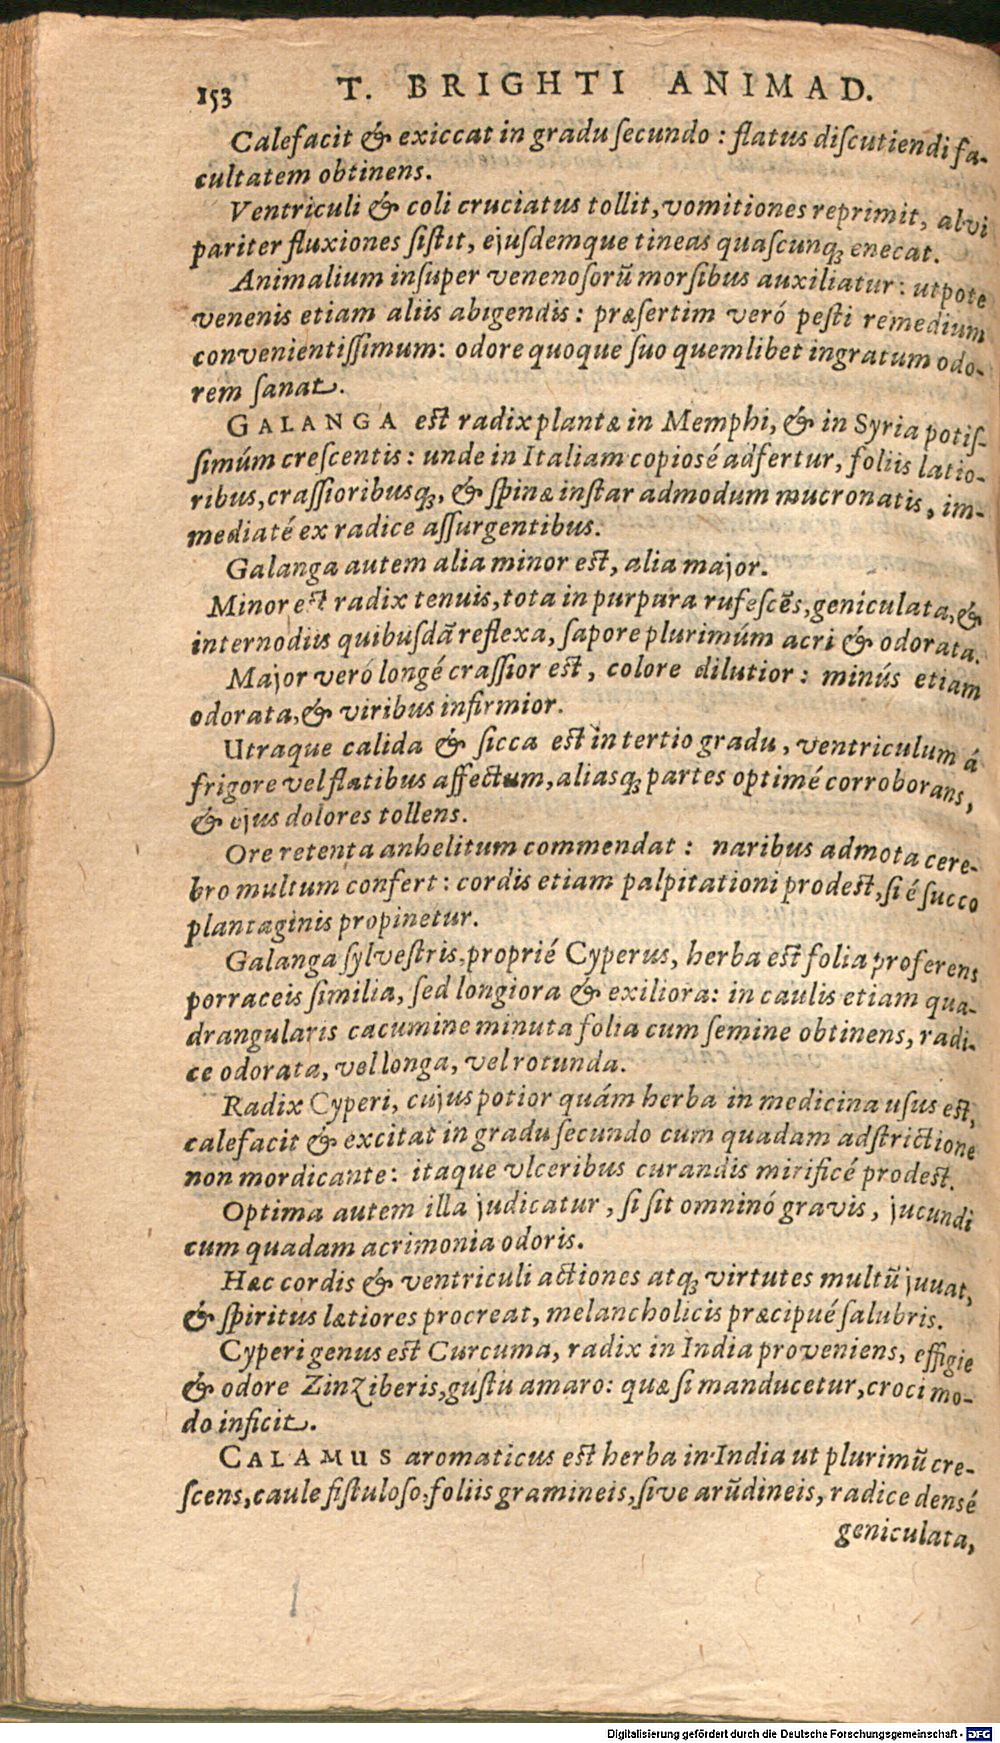 153 T. BRIGHTI ANIMAD.
Calefacit & exiccat in gradu ſecundo: flatus diſcutiendi fa-
cultatem obtinens.
Ventriculi & coli cruciatus tollit, vomitiones reprimit, alvi
pariter fluxiones ſiſtit, ejuſdemque tineas quaſcunq; enecat.
Animalium inſuper venenoſorũ morſibus auxiliatur: utpote
venenis etiam aliis abigendis: præſertim veró peſti remedium
convenientiſſimum: odore quoque ſuo quemlibet ingratum odo-
rem ſanat.
GALANGA eſt radix plantæ in Memphi, & in Syria potiſ-
ſimúm creſcentis: unde in Italiam copioſé adfertur, foliis latio-
ribus, craſſioribusq;, & ſpinæ inſtar admodum mucronatis, im-
mediaté ex radice aſſurgentibus.
Galanga autem alia minor eſt, alia major.
Minor eſt radix tenuis, tota in purpara rufeſcẽs, geniculata, &
internodiis quibuſdã reflexa, ſapore plurimúm acri & odorata.
Major veró longé craſſior eſt, colore dilutior: minús etiam
odorata, & viribus infirmior.
Utraque calida & ſicca eſt in tertio gradu, ventriculum á
frigore vel flatibus affectum, aliasq; partes optimé corroborans,
& ejus dolores tollens.
Ore retenta anhelitum commendat: naribus admota cere-
bro multum confert: cordis etiam palpitationi prodeſt, ſi é ſucco
plantaginis propinetur.
Galanga ſylveſtris, proprié Cyperus, herba eſt folia proferens
porraceis ſimilia, ſed longiora & exiliora: in caulis etiam qua-
drangularis cacumine minuta folia cum ſemine obtinens, radi-
ce odorata, vel longa, vel rotunda.
Radix Cyperi, cujus potior quám herba in medicina uſus eſt,
calefacit & excitat in gradu ſecundo cum quadam adſtrictione
non mordicante: itaque vlceribus curandis mirificé prodeſt.
Optima autem illa judicatur, ſi ſit omninó gravis, jucundi
cum quadam acrimonia odoris.
Hæc cordis & ventriculi actiones atq; virtutes multũ juvat,
& ſpiritus lætiores procreat, melancholicis præcipué ſalubris.
Cyperi genus eſt Curcuma, radix in India proveniens, effigie
& odore Zinziberis, guſtu amaro: quæ ſi manducetur, croci mo-
do inficit.
CALAMUS aromaticus eſt herba in India ut plurimũ cre-
ſcens, caule fiſtuloſo, foliis gramineis, ſive arũdineis, radice densé
geniculata,
Digitalisierung gefördert durch die Deutsche Forschungsgemeinschaft - DFG